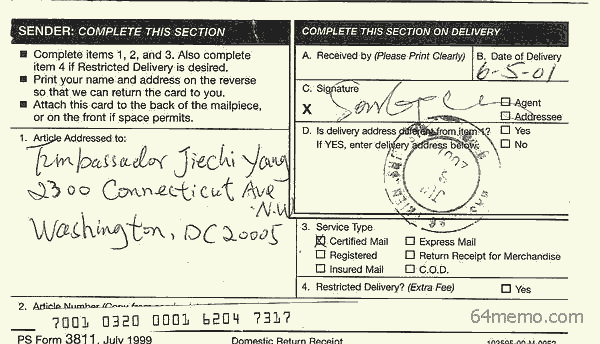 SENDER: COMPLETE THIS SECTION
■ Complete items 1, 2, and 3. Also complete
item 4 if Restricted Delivery is desired.
■ Print your name and address on the reverse
so that we can return the card to you.
■ Attach this card to the back of the mailpiece,
or on the front if space permits.
1. Article Addressed to:
Ambassador Jiechi Yang
2300 Connecticut Ave
N.W
Washington, DC 20005
2. Article Number (Copy from
7001 0320 0001 6204 7317
PS Form 3811, July 1999
Domestic Return Receipt
COMPLETE THIS SECTION ON DELIVERY
A. Received by (Please Print Clearly)
B. Date of Delivery
6-5-01
C. Signature
X
☐ Agent
☐ Addressee
D. Is delivery address different from item 1?
☐ Yes
If YES, enter delivery address below:
☐ No
3. Service Type
☒ Certified Mail
☐ Express Mail
☐ Registered
☐ Return Receipt for Merchandise
☐ Insured Mail
☐ C.O.D.
4. Restricted Delivery? (Extra Fee)
☐ Yes
64memo.com